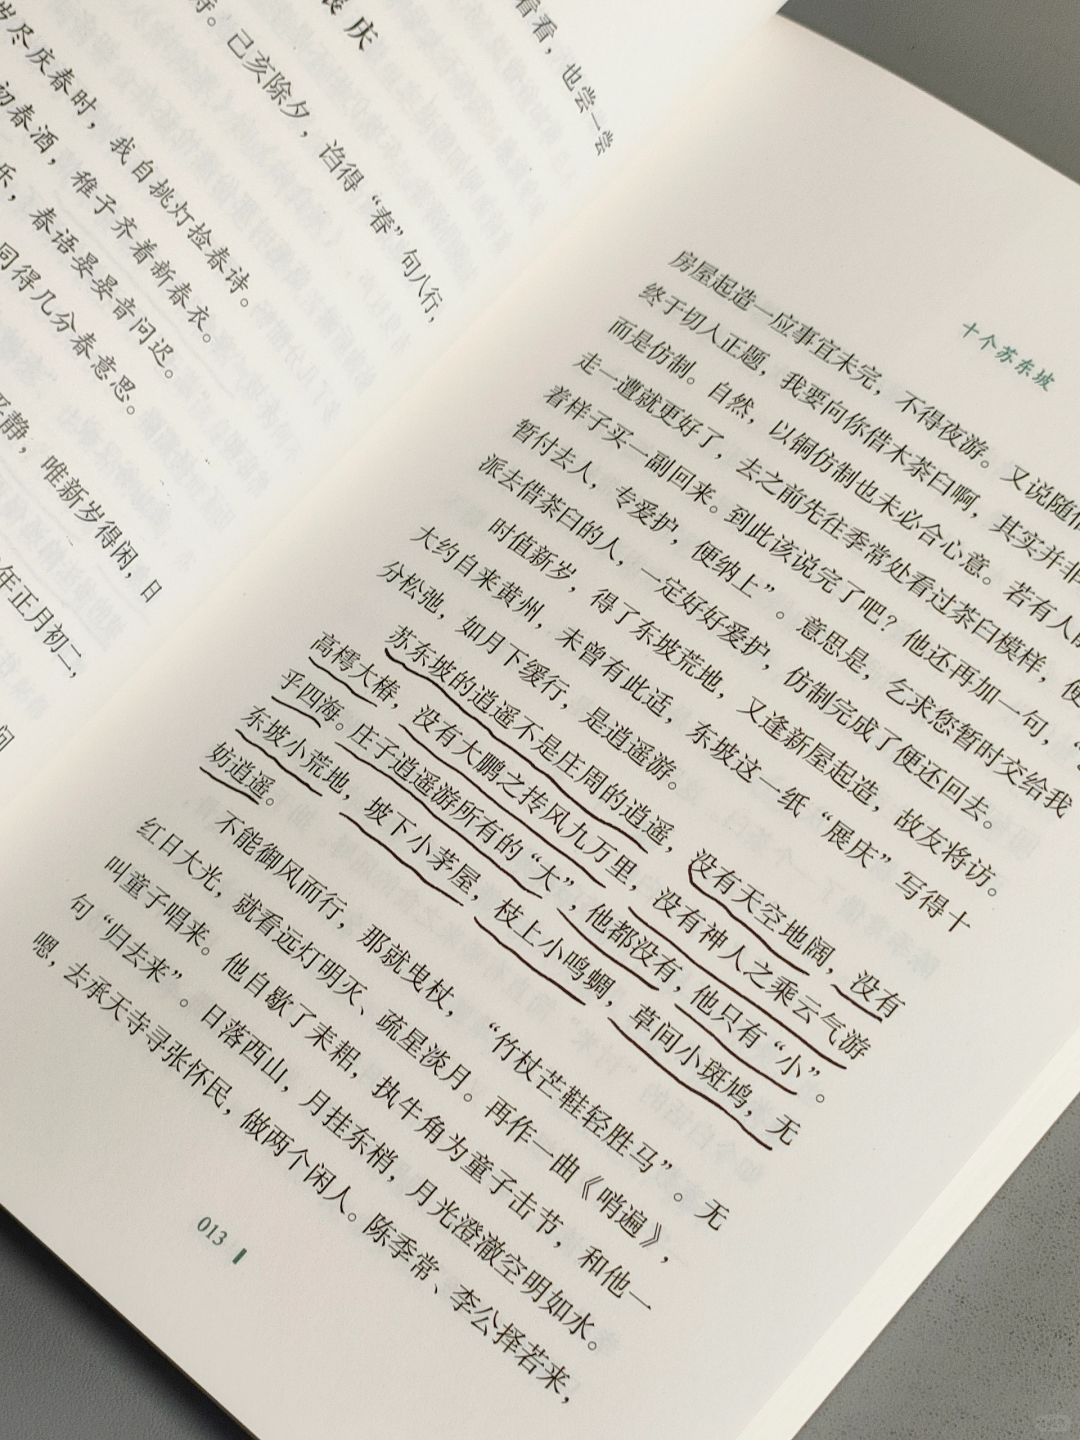 看看，也尝一尝
诗。己亥除夕，诌得“春”句八行，
岁尽庆春时，我自挑灯捡春诗。
初春酒，稚子齐着新春衣。
乐，春语晏晏音问迟。
同得几分春意思。
平静，唯新岁得闲，日
年正月初二，
问
十个苏东坡
房屋起造一应事宜未完，不得夜游。又说随信
终于切入正题，我要向你借木茶臼啊，其实并非
而是仿制。自然，以铜仿制也未必合心意。若有人
走一遭就更好了，去之前先往季常处看过茶臼模样，便
着样子买一副回来。到此该说完了吧？他还再加一句，“
暂付去人，专爱护，便纳上”。意思是，乞求您暂时交给我
派去借茶臼的人，一定好好爱护，仿制完成了便还回去。
时值新岁，得了东坡荒地，又逢新屋起造，故友将访。
大约自来黄州，未曾有此适，东坡这一纸“展庆”写得十
分松弛，如月下缓行，是逍遥游。
苏东坡的逍遥不是庄周的逍遥，没有天空地阔，没有
高樗大椿，没有大鹏之抟风九万里，没有神人之乘云气游
乎四海。庄子逍遥游所有的“大”，他都没有，他只有“小”。
东坡小荒地，坡下小茅屋，枝上小鸣蜩，草间小斑鸠，无
妨逍遥。
不能御风而行，那就曳杖，“竹杖芒鞋轻胜马”。无
红日大光，就看远灯明灭、疏星淡月。再作一曲《哨遍》，
叫童子唱来。他自歇了耒耜，执牛角为童子击节，和他一
句“归去来”。日落西山，月挂东梢，月光澄澈空明如水。
嗯，去承天寺寻张怀民，做两个闲人。陈季常、李公择若来，
013